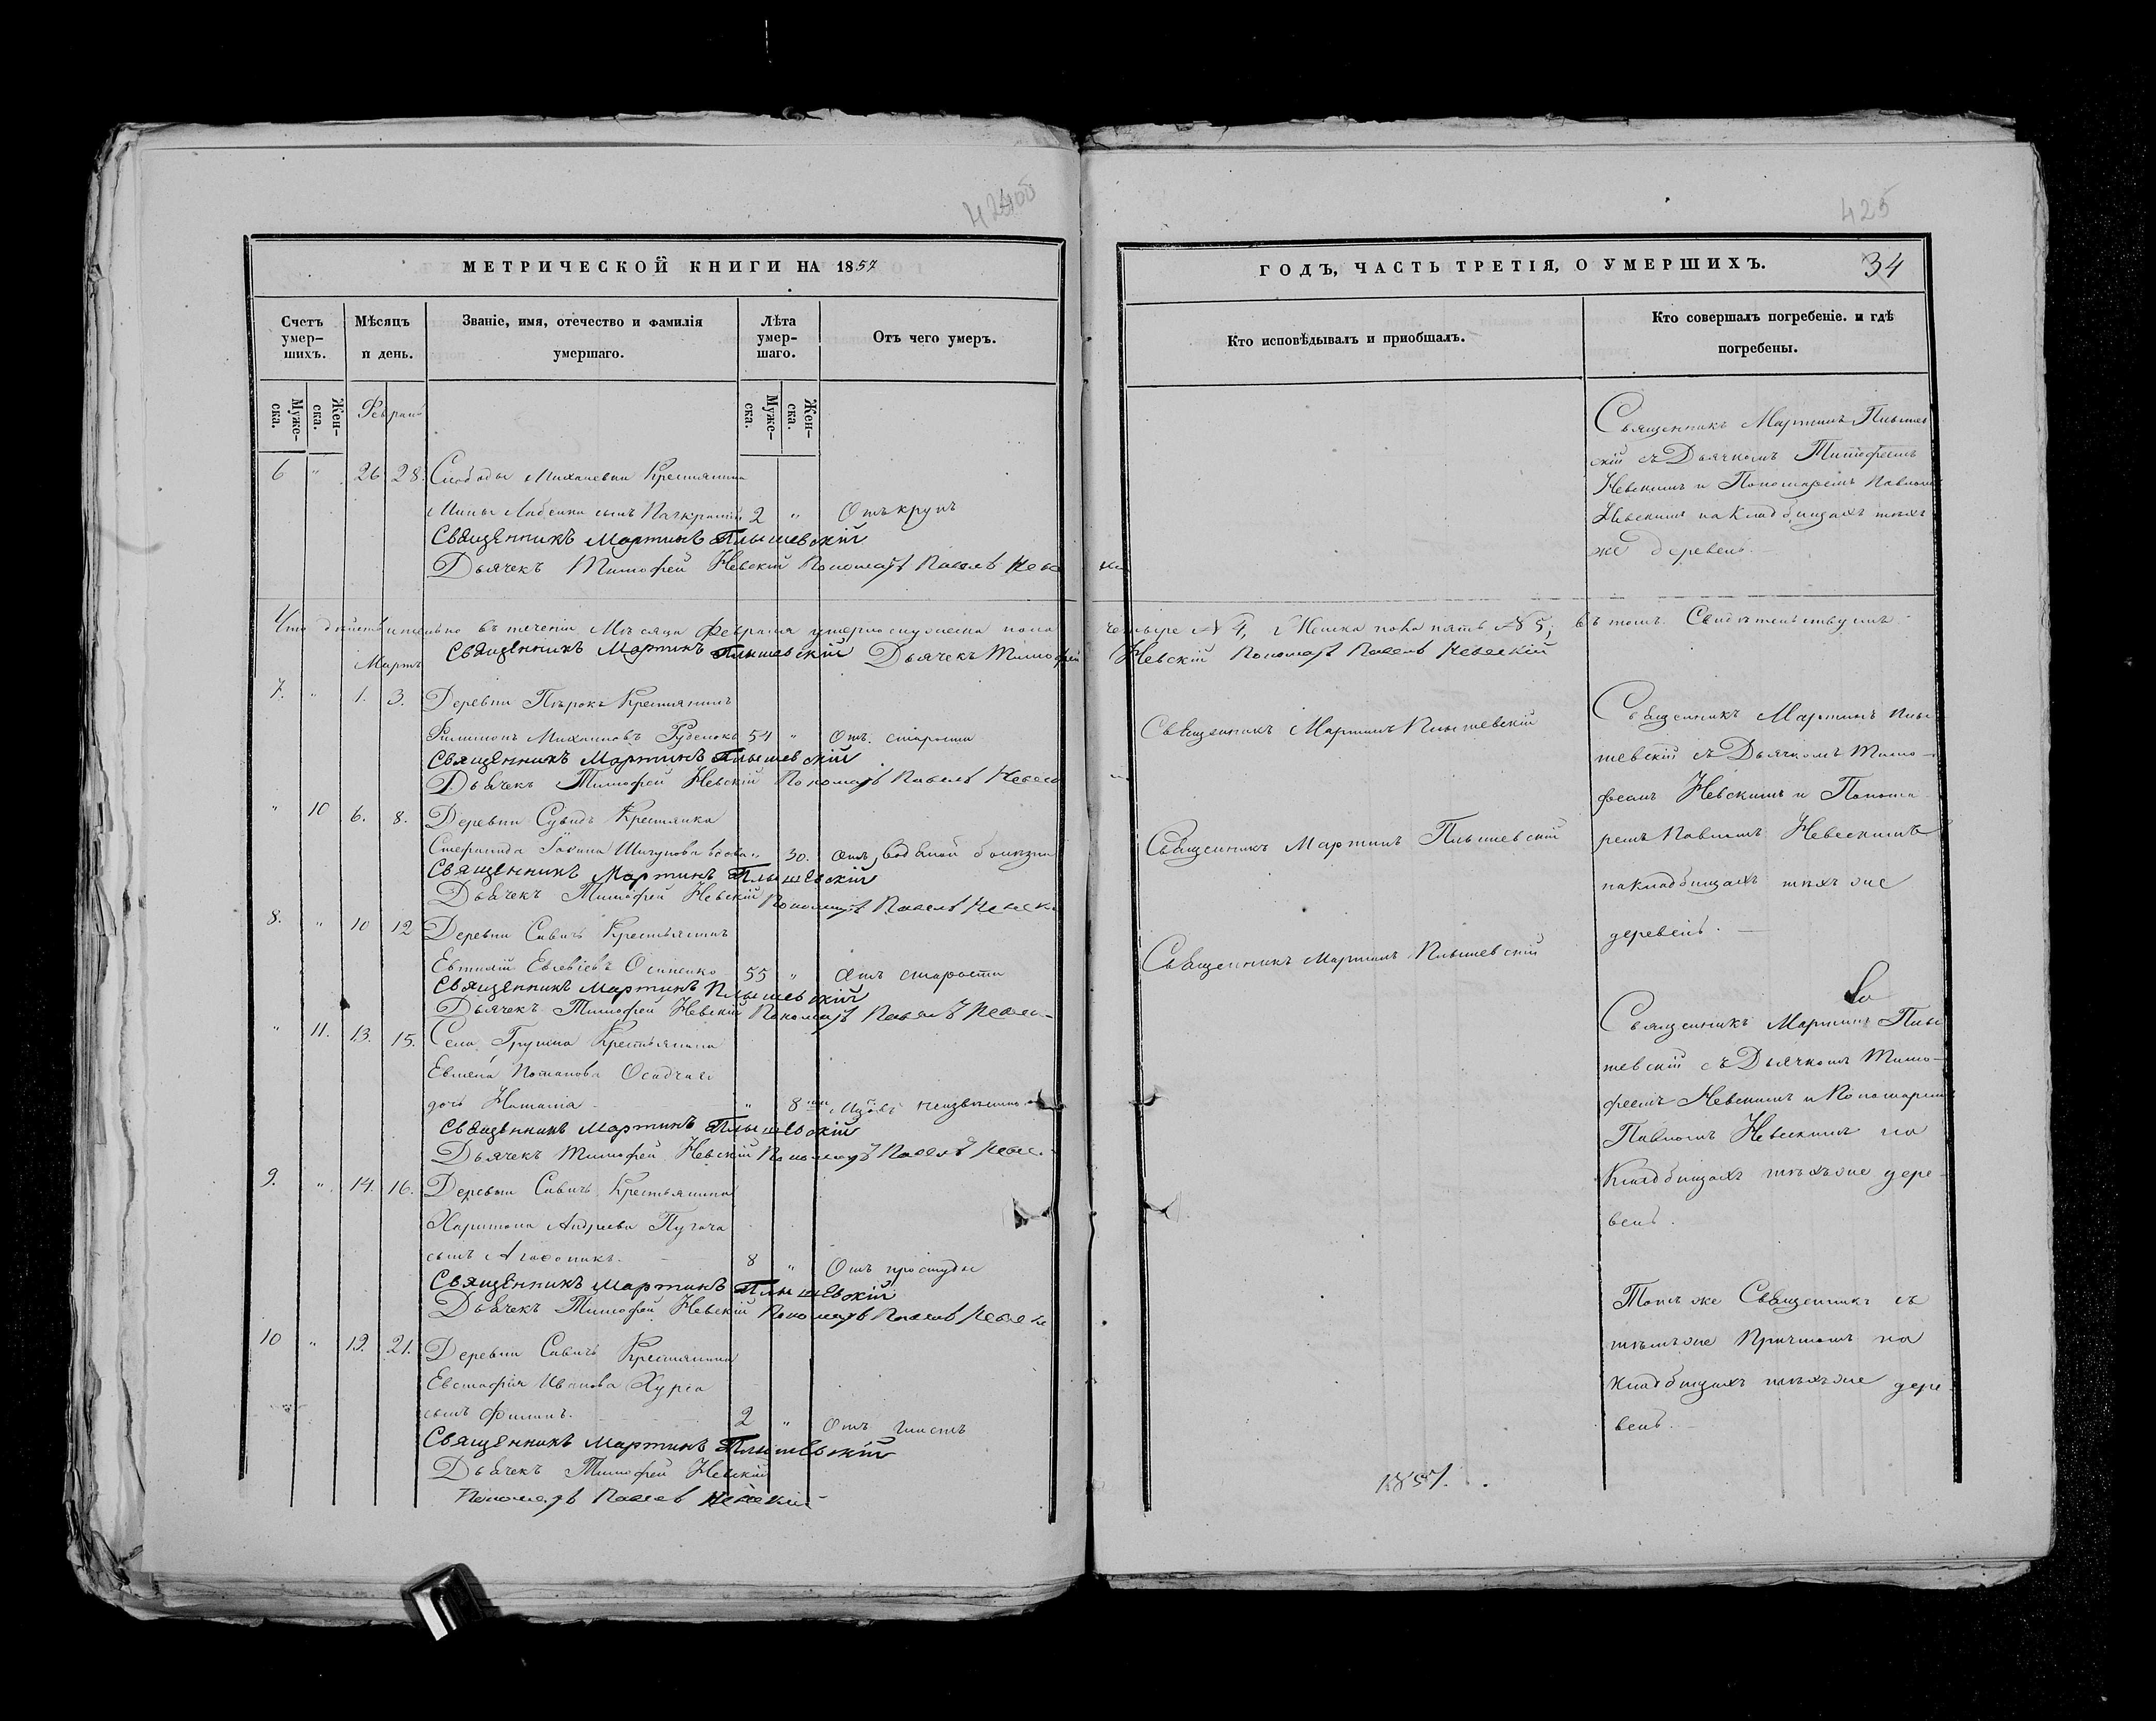 425
МЕТРИЧЕСКОЙ КНИГИ НА 1857
ГОДЪ, ЧАСТЬ ТРЕТІЯ, О УМЕРШИХЪ.
34
Счетъ умер-
шихъ.
Мѣсяцъ
и день.
Званіе, имя, отечество и фамилія
умершаго.
Лѣта
умер-
шаго.
Отъ чего умеръ.
Кто исповѣдывалъ и приобщалъ.
Кто совершалъ погребеніе. и гдѣ
погребены.
Муже-
ска.
Жен-
ска.
Муже-
ска.
Жен-
ска.
6 " 26 28. Слободы Крестьянина
сынъ 2 " Отъ крупъ
Священникъ Мартинъ Плышевскій
Дьячекъ Тимофей Невскій Пономарь Павелъ
Священникъ Мартинъ
скій съ Дьячкомъ Тимофеемъ
Невскимъ и Пономаремъ Павломъ
Невскимъ на Кладбищахъ тѣхъ
же деревень.
Что дѣйствительно въ теченіи Мѣсяца Февраля умерло мужеска пола четыре № 4, Женска пола пять № 5, въ томъ Свидѣтельствуемъ
Священникъ Мартинъ Плышевскій Дьячекъ Тимофей Невскій Пономарь Павелъ Невскій
Мартъ
7. " 1. 3. Деревни Крестьянинъ
Филимонъ Михаиловъ Руденокъ 54 " Отъ старости
Священникъ Мартинъ Плышевскій
Дьячекъ Тимофей Невскій Пономарь Павелъ
Священникъ Мартинъ Плышевскій
Священникъ Мартинъ Плы-
шевскій съ Дьячкомъ Тимо-
феемъ Невскимъ и Понома-
ремъ Павломъ Невскимъ
на кладбищахъ тѣхъ же
деревень.
" 10 6. 8. Деревни Крестьянка
вдова " 30. Отъ водяной болѣзни
Священникъ Мартинъ Плышевскій
Дьячекъ Тимофей Невскій Пономарь Павелъ
Священникъ Мартинъ Плышевскій
8. " 10 12 Деревни Савичъ Крестьянинъ
Осипенко 55 " Отъ старости
Священникъ Мартинъ Плышевскій
Дьячекъ Тимофей Невскій Пономарь Павелъ
Священникъ Мартинъ Плышевскій
" 11. 13. 15. Села Крестьянина
Потапова Осадчаго
дочь Наталія " 8
Священникъ Мартинъ Плышевскій
Дьячекъ Тимофей Невскій Пономарь Павелъ
Священникъ Мартинъ Плы-
шевскій съ Дьячкомъ Тимо-
феемъ Невскимъ и Пономаремъ
Павломъ Невскимъ на
Кладбищахъ тѣхъ же дере-
вень.
9. " 14. 16. Деревни Савичъ Крестьянина
Харитона Андреева Пугача
сынъ 8 " Отъ простуды
Священникъ Мартинъ Плышевскій
Дьячекъ Тимофей Невскій Пономарь Павелъ
Тотъ же Священникъ съ
тѣмъ же Причтомъ на
Кладбищахъ тѣхъ же дере-
вень.
10 " 19. 21. Деревни Савичъ Крестьянина
Евстафія Иванова Хурса
сынъ Филипъ. 2 " Отъ глистъ
Священникъ Мартинъ Плышевскій
Дьячекъ Тимофей Невскій
Пономарь Павелъ Невскій
1857.